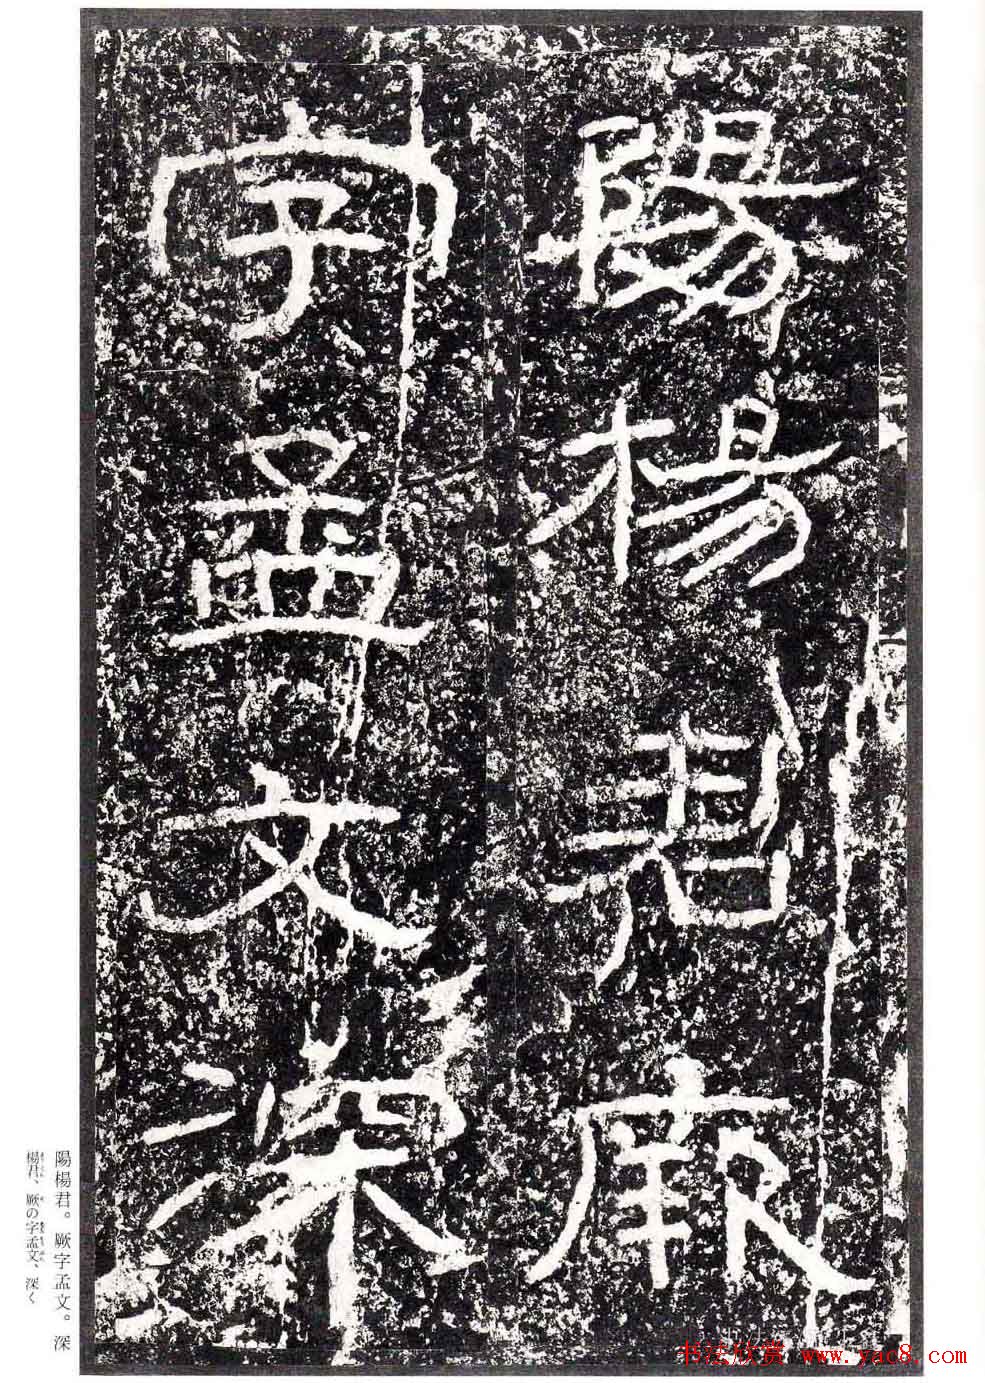 陽楊君厥
字孟文深
陽楊君。厥字孟文。深
楊君、厥の字孟文、深く
书法欣赏 www.yac8.com